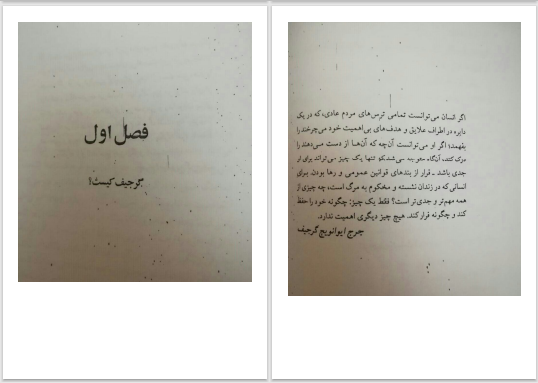 فصل اول
گرجیف کیست؟
اگر انسان می‌توانست تمامی ترس‌های مردم عادی، که در یک
دایره در اطراف علایق و هدف‌های بی‌اهمیت خود می‌چرخند را
بفهمد؛ اگر او می‌توانست آن‌چه که آن‌ها از دست می‌دهند را
درک کند، آنگاه متوجه می‌شد که تنها یک چیز می‌تواند برای او
جدی باشد ـ فرار از بندهای قوانین عمومی و رها بودن. برای
انسانی که در زندان نشسته و محکوم به مرگ است، چه چیزی از
همه مهم‌تر و جدی‌تر است؟ فقط یک چیز: چگونه خود را حفظ
کند و چگونه فرار کند. هیچ چیز دیگری اهمیت ندارد.
جرج ایوانویچ گرجیف